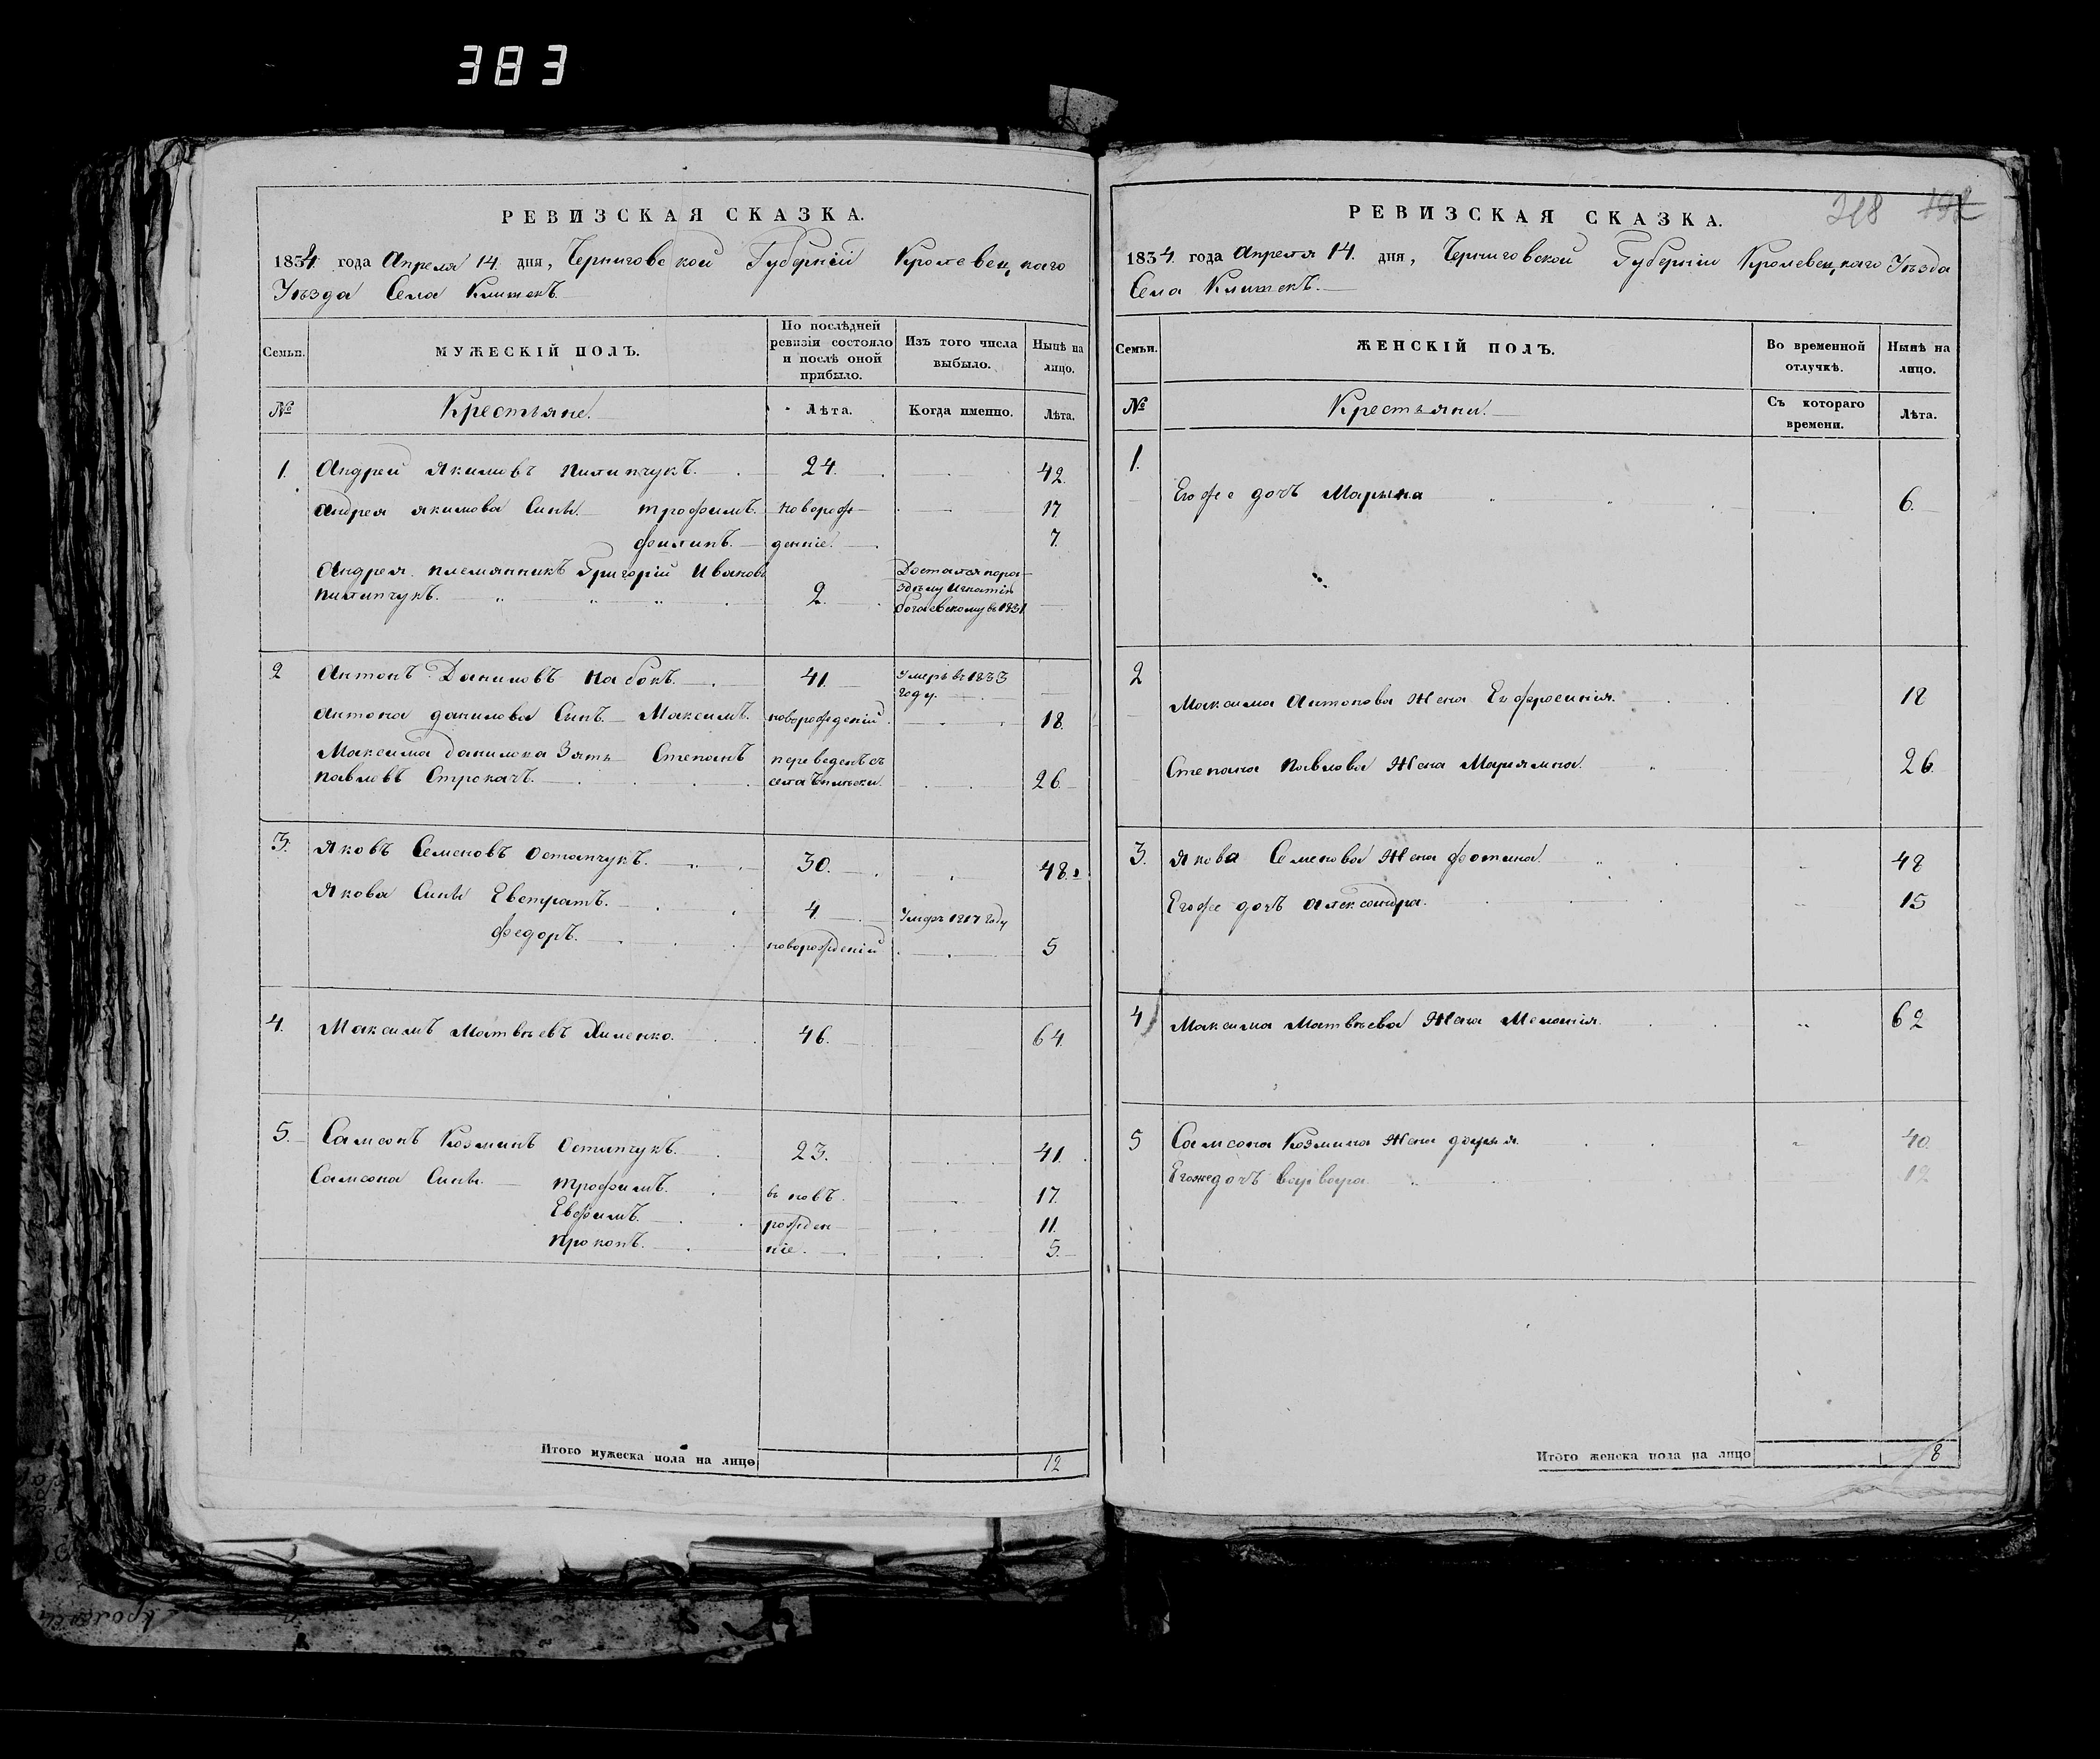 383
РЕВИЗСКАЯ СКАЗКА.
1834 года Апреля 14. дня, Черниговской Губерніи Кролевецкаго
Уѣзда Села Клишекъ.
Семьи. МУЖЕСКІЙ ПОЛЪ. По послѣдней ревизіи состояло и послѣ оной прибыло. Изъ того числа выбыло. Нынѣ на лицо.
№ Крестьяне. Лѣта. Когда именно. Лѣта.
1. Андрей Якимовъ Пилипчукъ. 24. 42.
Андрея Якимова Сины. Трофимъ. новорож- 17
Филипъ. деніе. 7.
Андрея племянникъ Григорій Ивановъ Достался
Пилипчукъ. 2. Игнатію
въ 1831
2 Антонъ Даниловъ Набокъ. 41. Умеръ въ 1833
году.
Антона данилова Синъ. Максимъ. новорожденій 18.
Максима данилова Зять Степанъ переведенъ съ
Павловъ Строкачъ. села 26.
3. Яковъ Семеновъ Остапчукъ. 30. 48.
Якова Сины Евстратъ. 4. Умеръ 1817 году
Федоръ. новорожденій 5
4. Максимъ Матвѣевъ 46. 64.
5. Самсонъ Козминъ Остапчукъ. 23. 41.
Самсона Сины. Трофимъ. въ новѣ 17.
Евфимъ. рожден 11.
Прокопъ. ніе. 5.
Итого мужеска пола на лицо 12
318 192
РЕВИЗСКАЯ СКАЗКА.
1834. года Апреля 14. дня, Черниговской Губерніи Кролевецкаго Уѣзда
Села Клишекъ.
Семьи. ЖЕНСКІЙ ПОЛЪ. Во временной отлучкѣ. Нынѣ на лицо.
№ Крестьяни. Съ котораго времени. Лѣта.
1.
Егоже дочъ Марына 6.
2
Максима Антонова Жена Евфросинія. 18
Степана Павлова Жена Мариямна. 26.
3. Якова Семенова Жена Фотина. 48
Егоже дочъ Александра. 15
4 Максима Матвѣева Жена Меланія. 62
5 Самсона Козмина Жена дарья. 40.
Егожедочъ варвара. 12
Итого женска пола на лицо 8